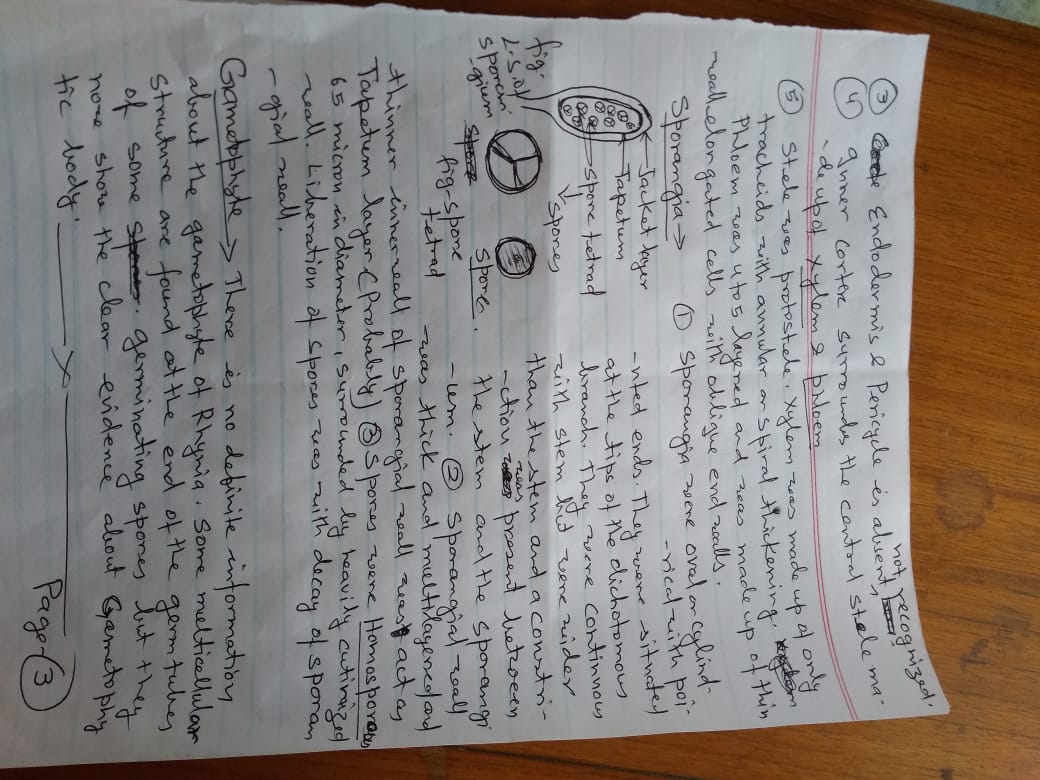 ③ Endodermis & Pericycle is absent, not recognized.
④ Inner cortex surrounds the central stele ma-
-de up of xylem & phloem
⑤ Stele was protostele. xylem was made up of only
tracheids with annular or spiral thickening.
Phloem was 4 to 5 layered and was made up of thin
walled elongated cells with oblique end walls.
Sporangia → ① Sporangia were oval or cylind-
-rical with poi-
-nted ends. They were situated
at the tips of the dichotomous
branch. They were continuous
with stem but were wider
than the stem and a constri-
-ction was present between
the stem and the sporangi
-um. ② Sporangial wall
was thick and multilayered and
Jacket layer
Tapetum
Spore tetrad
Spores
fig.
L.S. of
sporan-
-gium
fig-spore
tetrad
Spore.
thinner inner wall of sporangial wall was act as
Tapetum layer (Probably) ③ Spores were Homosporous
65 micron in diameter, surrounded by heavily cutinized
wall. Liberation of spores was with decay of sporan
-gial wall.
Gametophyte → There is no definite information
about the gametophyte of Rhynia. Some multicellular
struture are found at the end of the germ tubes
of some germinating spores but they
none show the clear evidence about Gametophy
tic body.
x
Page-③